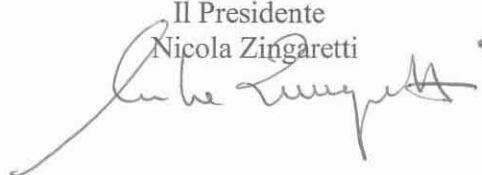 Il Presidente
Nicola Zingaretti